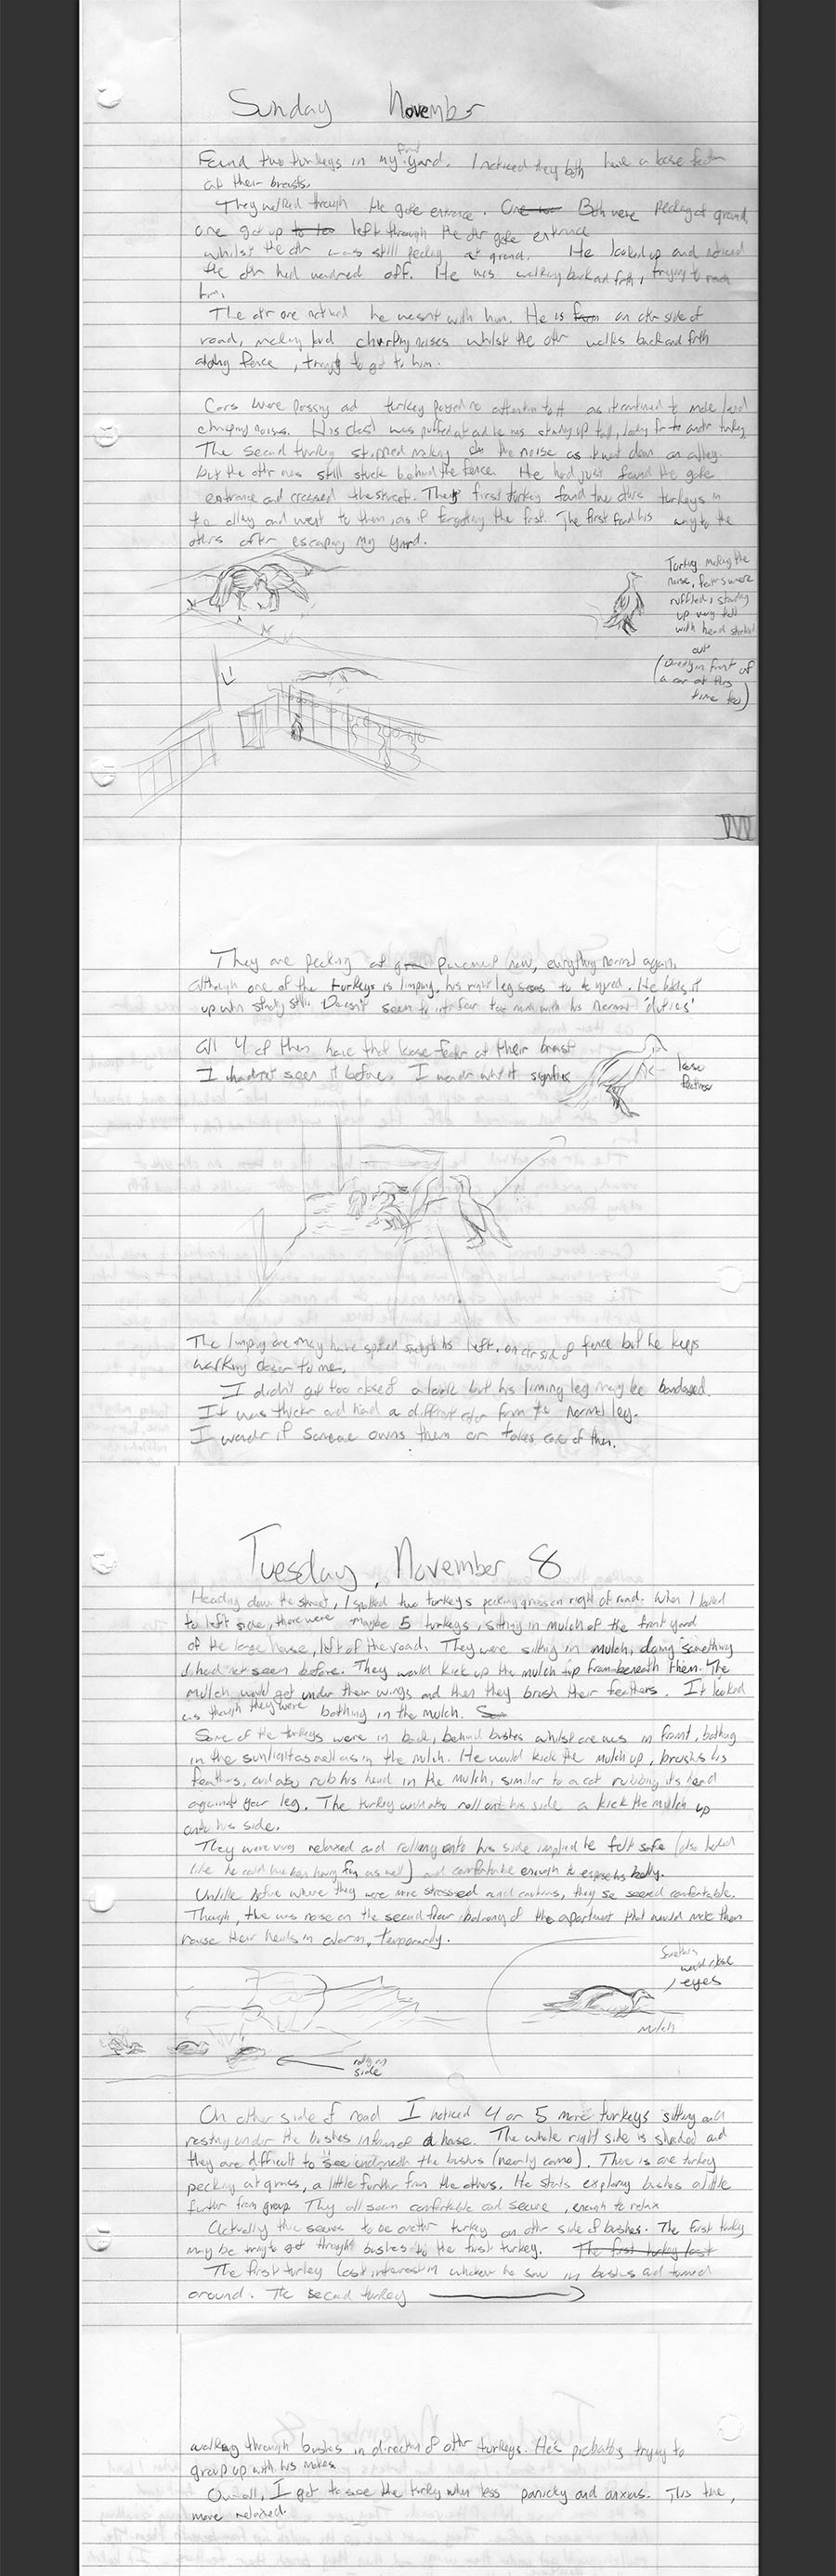 Sunday November
Found two turkeys in my front yard. I noticed they both have a loose feather
at their breasts.
They walked through the gate entrance. One Both were pecking at ground,
one got up to left through the othr gate entrance
whilst the othr was still pecking at ground. He looked up and noticed
the othr had wandred off. He was walking back and forth, trying to reach
him.
The othr one noticed he wasn't with him. He is from on othr side of
road, making loud chirping noises whilst the othr walks back and forth
along fence, trying to get to him.
Cars were passing and turkey payed no attention to it as it continued to make loud
chirping noises. His chest was puffed out and he was standing up tall, looking for to another turkey.
The second turkey stopped making the noise as it went down an alley.
but the othr was still stuck behind the fence. He had just found the gate
entrance and crossed the street. They first turkey found the othrs turkeys in
the alley and went to them, as if forgetting the first. The first found his way to the
others after escaping my yard.
Turkey making the
noise, feathers were
ruffled, standing
up very tall
with head stretched
out
(Directly in front of
a car at this
time too)
They are pecking at pavement now, everything normal again,
although one of the turkeys is limping, his right leg seems to be injured. He holds it
up when standing still. Doesn't seem to interfear too much with his normal 'duties'
All 4 of them have that loose feather at their breast
I hadnot seen it before. I wonder what it signifies
loose
feathers
The limping one may have spotted me left, on othr side of fence but he keeps
walking closer to me.
I didn't get too close of a look but his liming leg may be bandaged.
It was thicker and had a diffrent color form the normal leg.
I wonder if someone owns them or takes care of them.
Tuesday, November 8
Heading down the street, I spotted two turkeys pecking grass on right of road. When I looked
to left side, there were maybe 5 turkeys, sitting in mulch of the front yard
of the large house, left of the road. They were sitting in mulch, doing something
I had not seen before. They would kick up the mulch up from beneath them. The
mulch would get under their wings and then they brush their feathers. It looked
as though they were bathing in the mulch. So
Some of the turkeys were in back, behind bushes whilst one was in front, bathing
in the sunlight as well as in the mulch. He would kick the mulch up, brush his
feathers, and also rub his head in the mulch, similar to a cat rubbing its head
against your leg. The turkey would also roll onto his side a kick the mulch up
onto his side.
They were very relaxed and rolling onto his side implied he felt safe (also looked
like he could have been having fun as well) and comfortable enough to expose his belly.
Unlike before where they were more stressed and cautious, they se seemed comfortable.
Though, the was noise on the second floor balcony of the apartment that would make them
raise their heads in alarm, temporarily.
Sometimes
would close
eyes
mulch
rolling on
side
On other side of road I noticed 4 or 5 more turkeys sitting and
resting under the bushes infront of a house. The whole right side is shaded and
they are difficult to see underneath the bushes (nearly camo). There is one turkey
pecking at grass, a little further from the others. He starts exploring bushes a little
further from group. They all seem comfortable and secure, enough to relax
Actually there seems to be another turkey on othr side of bushes. The first turkey
may be trying to get through bushes to the turkey. The first turkey lost
The first turkey lost interest in whatever he saw in bushes and turned
around. The second turkey
walking through bushes in direction of othr turkeys. He's probably trying to
group up with his mates.
Overall, I got to see the turkey when less panicky and anxious. This time,
more relaxed.